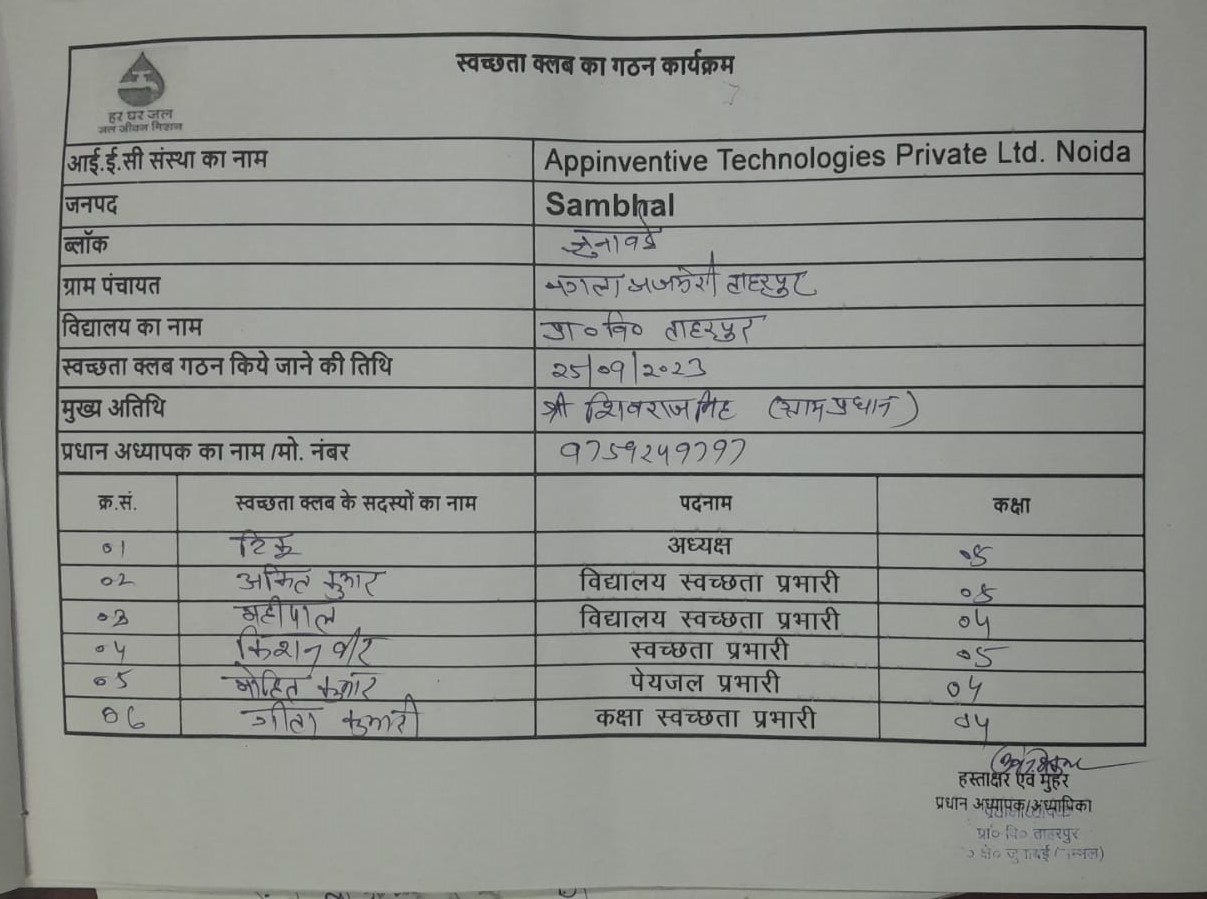 स्वच्छता क्लब का गठन कार्यक्रम
हर घर जल
जल जीवन मिशन
आई.ई.सी संस्था का नाम Appinventive Technologies Private Ltd. Noida
जनपद Sambhal
ब्लॉक
ग्राम पंचायत ताहरपुर
विद्यालय का नाम प्रा०वि० ताहरपुर
स्वच्छता क्लब गठन किये जाने की तिथि 25/09/2023
मुख्य अतिथि श्री शिवराज सिंह (ग्राम प्रधान)
प्रधान अध्यापक का नाम /मो. नंबर
क्र.सं. स्वच्छता क्लब के सदस्यों का नाम पदनाम कक्षा
01 टिंकू अध्यक्ष 05
02 अमित कुमार विद्यालय स्वच्छता प्रभारी 05
03 महीपाल विद्यालय स्वच्छता प्रभारी 04
04 किशन वीर स्वच्छता प्रभारी 05
05 मोहित कुमार पेयजल प्रभारी 04
06 गीता कुमारी कक्षा स्वच्छता प्रभारी 04
हस्ताक्षर एवं मुहर
प्रधान अध्यापक/अध्यापिका
प्रा० वि० ताहरपुर